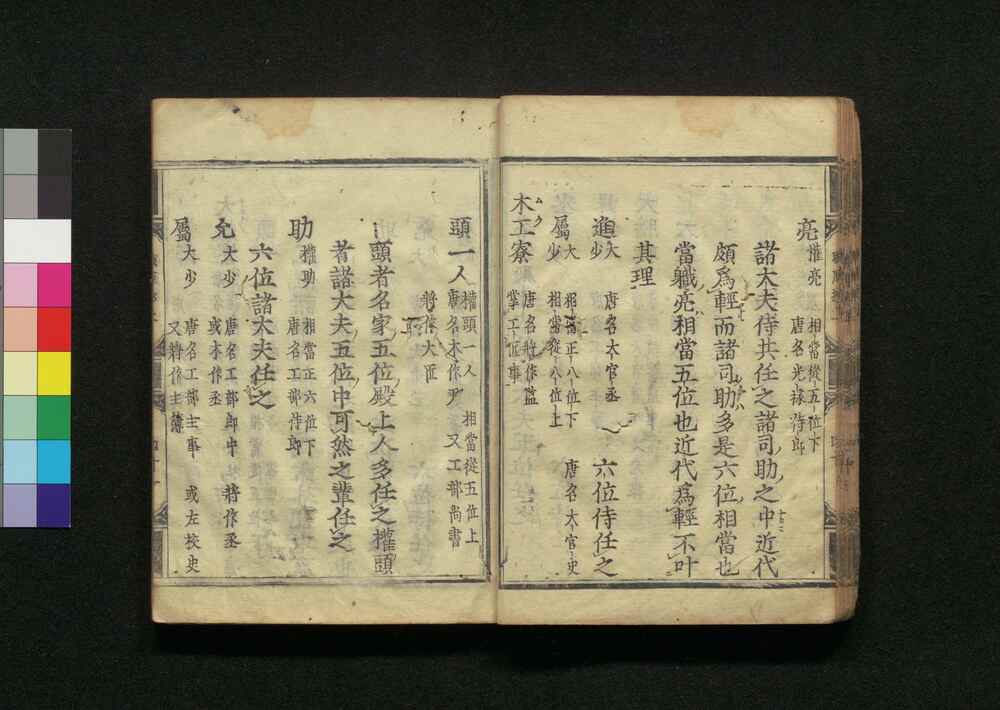 亮 權亮 相當從五位下
唐名光祿侍郎
諸大夫侍共任之諸司助之中近代
頗爲輕而諸司助多是六位相當也
當職亮相當五位也近代爲輕不叶
其理
進 大 少 唐名大官丞 六位侍任之
屬 大 少 相當正八位下
相當從八位上 唐名大官史
木工寮 唐名將作監
掌工匠事
頭一人 權頭一人 相當從五位上
唐名木作尹 又工部尚書
將作大匠
頭者名家五位殿上人多任之權頭
者諸大夫五位中可然之輩任之
助 權助 相當正六位下
唐名工部侍郎
六位諸大夫任之
允 大少 唐名工部郎中 將作丞
或木作丞
屬 大少 唐名工部主事 或左校史
又將作主簿